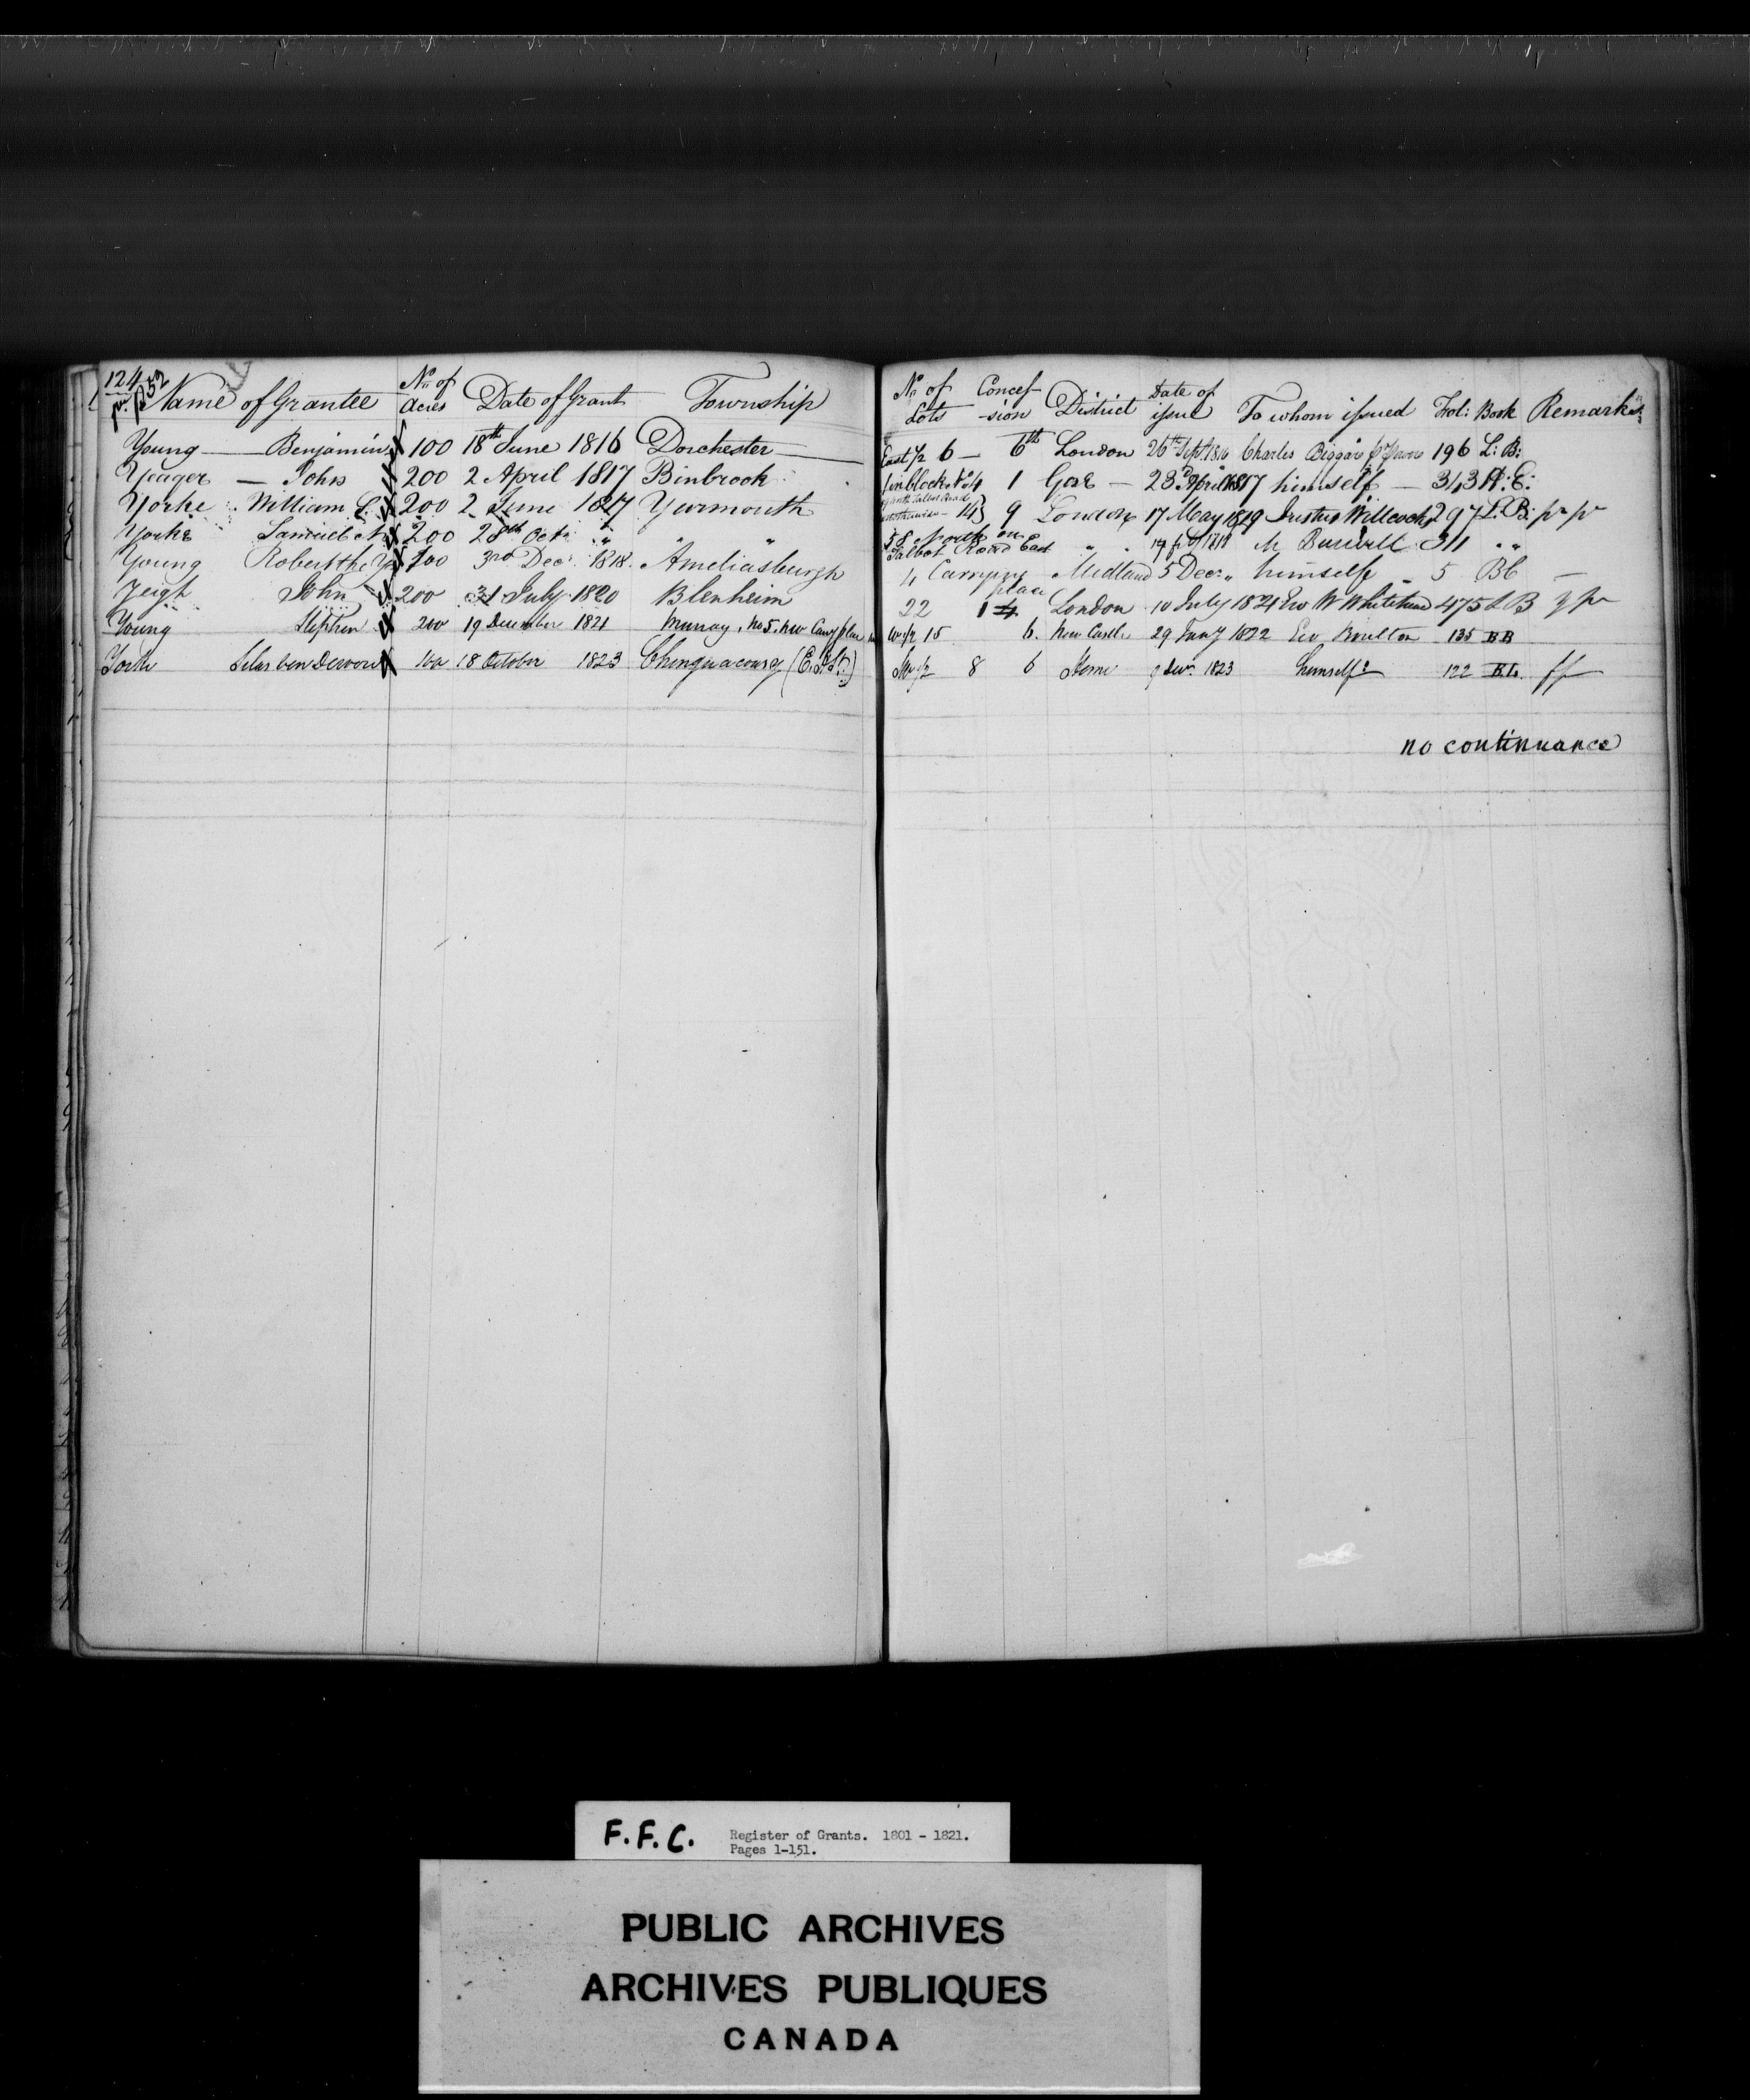 124
p. 52
Name of Grantee No. of Acres Date of Grant Township No. of Lots Concession District Date of issue To whom issued Fol: Book Remarks
Young Benjamin 100 18th June 1816 Dorchester East 1/2 6 6th London 26th Sept 1816 Charles Biggar 196 L: B:
Yeager John 200 2 April 1817 Binbrook in block No. 4 1 Gore 23d April 1817 himself 343 E:
Yorke William 200 2 June 1817 Yarmouth 14 9 London 17 May 1819 Justus Willcocks 297 L: B:
Yorke Samuel 200 28th Octr " " 58 North on Talbot Road East " " M Burwell 311 " "
Young Robert the Y 100 3rd Decr. 1818. Ameliasburgh 4 Carrying place Midland 5 Decr. " himself 5 BC
Yeigh John 200 31 July 1820 Blenheim 22 1 London 10 July 1821 W Whitehead 475 LB
Young Stephen 200 19 December 1821 Murray, No 5. New Carry place W 1/2 15 6. New Castle 29 Jany 1822 Boulton 135 BB
York Silas 100 18 October 1823 Chinguacousy (E. H. St.) SW 1/2 8 6 Home 9 Decr. 1823 himself 122
no continuance
F.F.C. Register of Grants. 1801 - 1821.
Pages 1-151.
PUBLIC ARCHIVES
ARCHIVES PUBLIQUES
CANADA